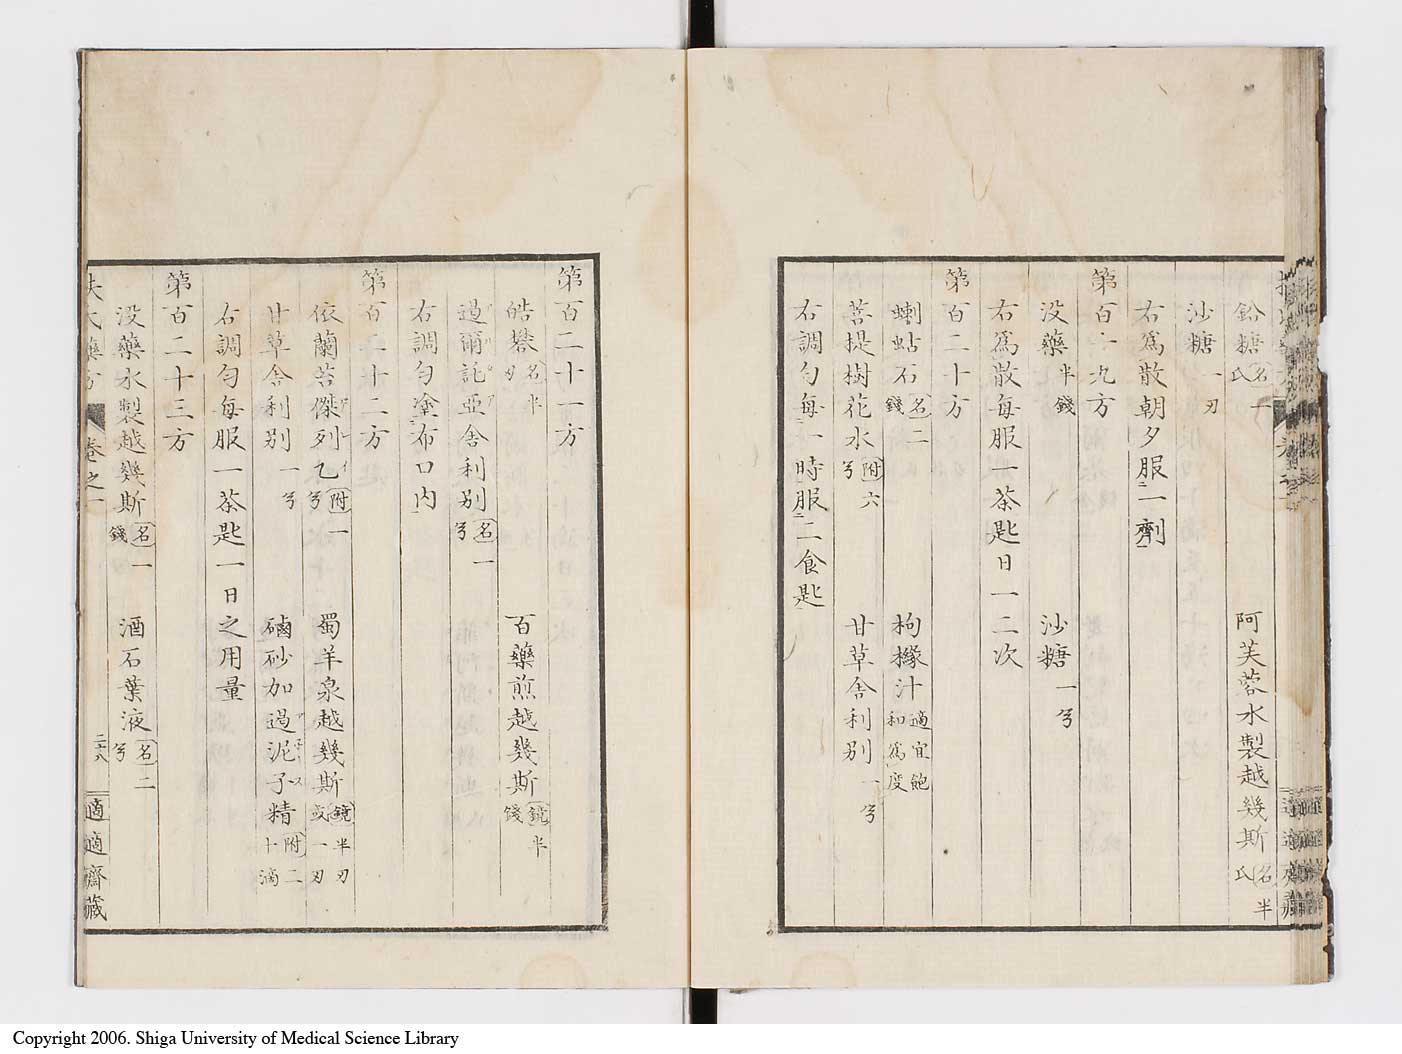 鉛糖 名十氏 阿芙蓉水製越幾斯 名半氏
沙糖 一刃
右爲散朝夕服一劑
第百十九方
没藥 半錢 沙糖 一兮
右爲散每服一茶匙日一二次
第百二十方
蝲蛄石 名二錢 枸櫞汁 適宜飽和爲度
菩提樹花水 附六兮 甘草舎利別 一兮
右調勻每一時服二食匙
第百二十一方
皓礬 名半刃 百藥煎越幾斯 鏡半錢
過爾託亞舎利別 名一兮
右調勻塗布口内
第百二十二方
依蘭苔傑列乙 附一兮 蜀羊泉越幾斯 鏡半刃或一刃
甘草舎利別 一兮 磠砂加過泥子精 附二十滴
右調勻每服一茶匙一日之用量
第百二十三方
没藥水製越幾斯 名一錢 酒石葉液 名二兮
扶氏藥方 卷之一 二十八 適適齋藏
Copyright 2006. Shiga University of Medical Science Library